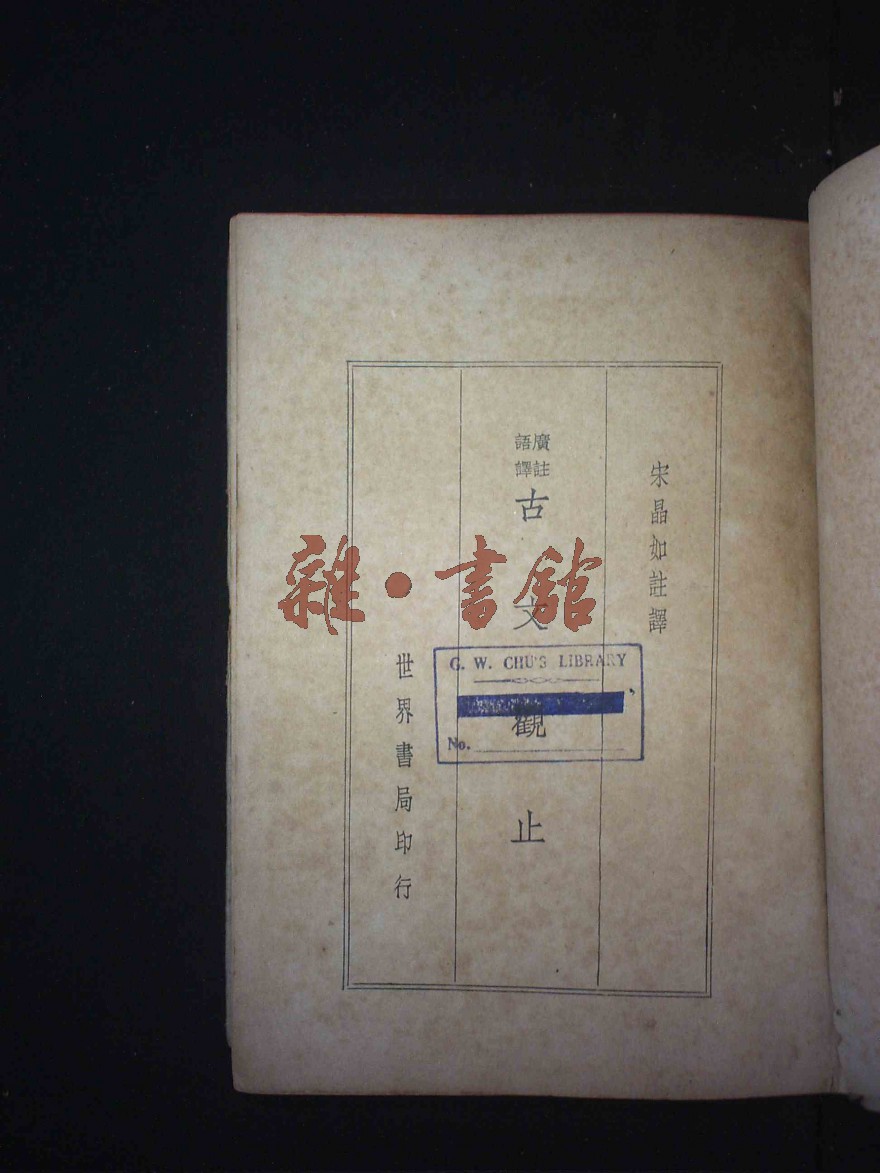 宋晶如註譯
廣註
語譯
古文觀止
世界書局印行
雜·書館
G. W. CHU'S LIBRARY
No.